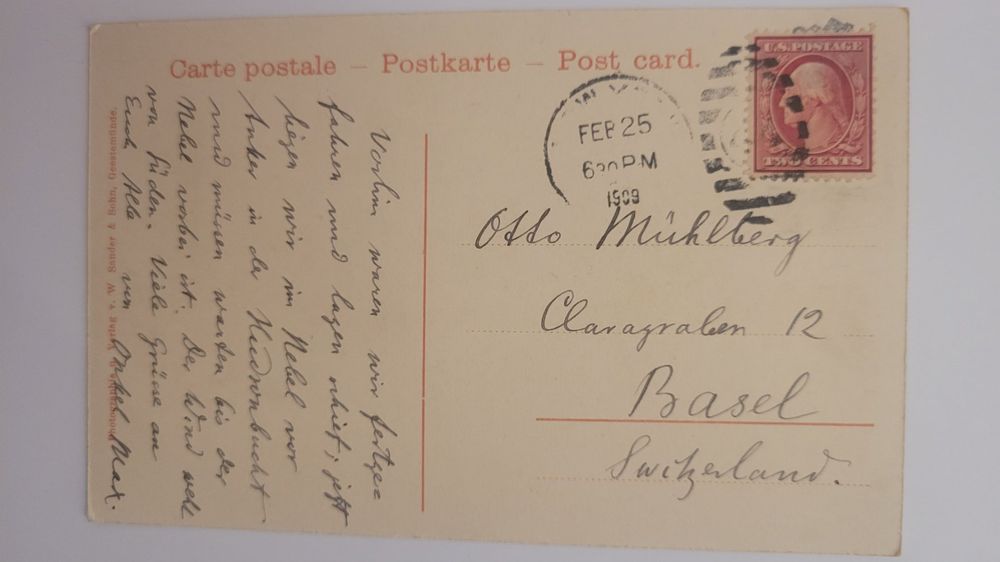 Carte postale – Postkarte – Post card.
U.S. POSTAGE
TWO CENTS
FEB 25
630 PM
1909
Vorhin waren wir festge=
fahren und lagen schief; jetzt
liegen wir im Nebel vor
Anker in der Hudsonbucht
und müssen warten bis der
Nebel vorbei ist. Der Wind weht
von Süden. Viele Grüsse an
Euch Alle von Onkel Max.
Otto Mühlberg
Claragraben 12
Basel
Switzerland.
Verlag v. W. Sander & Sohn, Geestemünde.